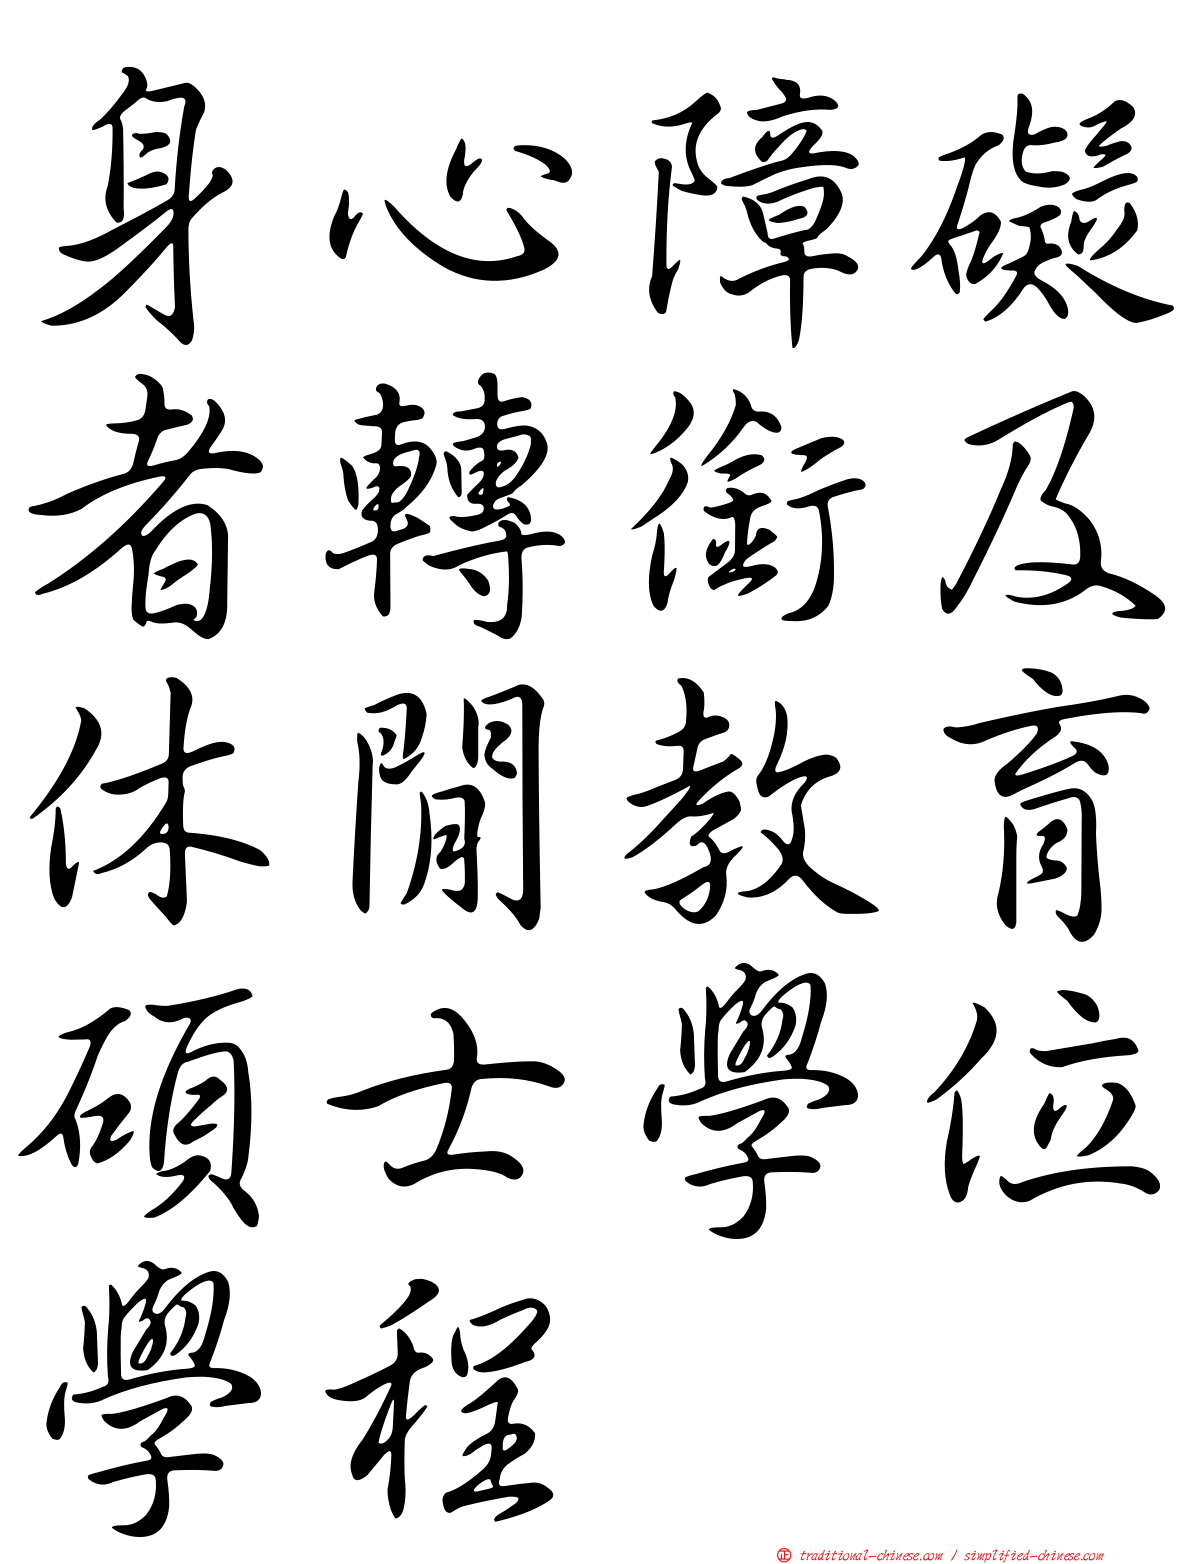 身心障礙
者轉銜及
休閒教育
碩士學位
學程
㊣ traditional-chinese.com / simplified-chinese.com